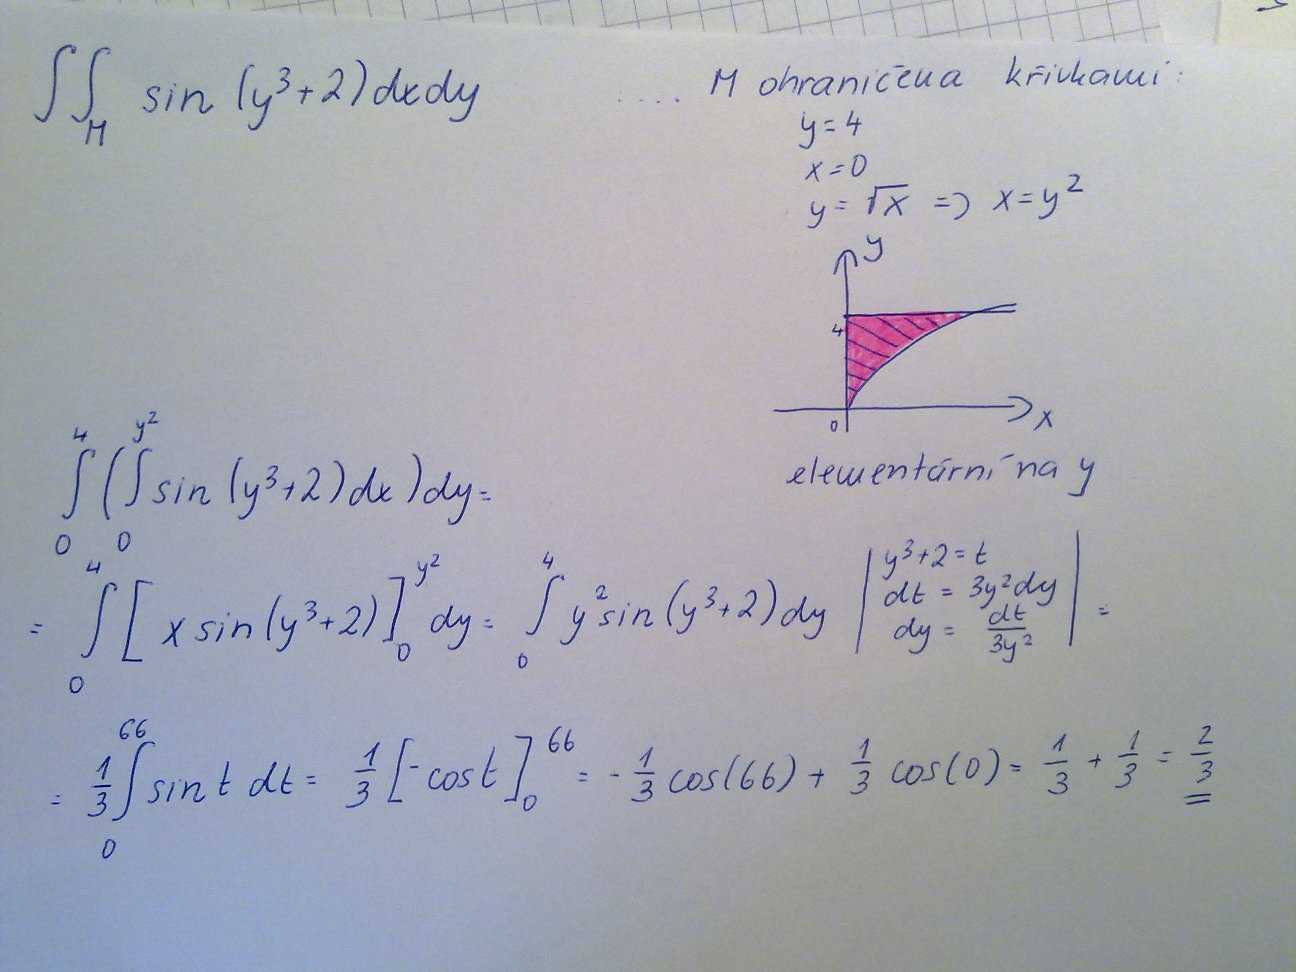 ∫∫_M sin (y³+2) dxdy .... M ohraničena křivkami:
y = 4
x = 0
y = √x => x = y²
y
4
0
x
elementární na y
∫₀⁴ (∫₀^{y²} sin (y³+2) dx) dy =
= ∫₀⁴ [x sin (y³+2)]₀^{y²} dy = ∫₀⁴ y² sin (y³+2) dy | y³+2 = t
dt = 3y² dy
dy = dt/3y² | =
= 1/3 ∫₀⁶⁶ sin t dt = 1/3 [-cos t]₀⁶⁶ = - 1/3 cos(66) + 1/3 cos(0) = 1/3 + 1/3 = 2/3